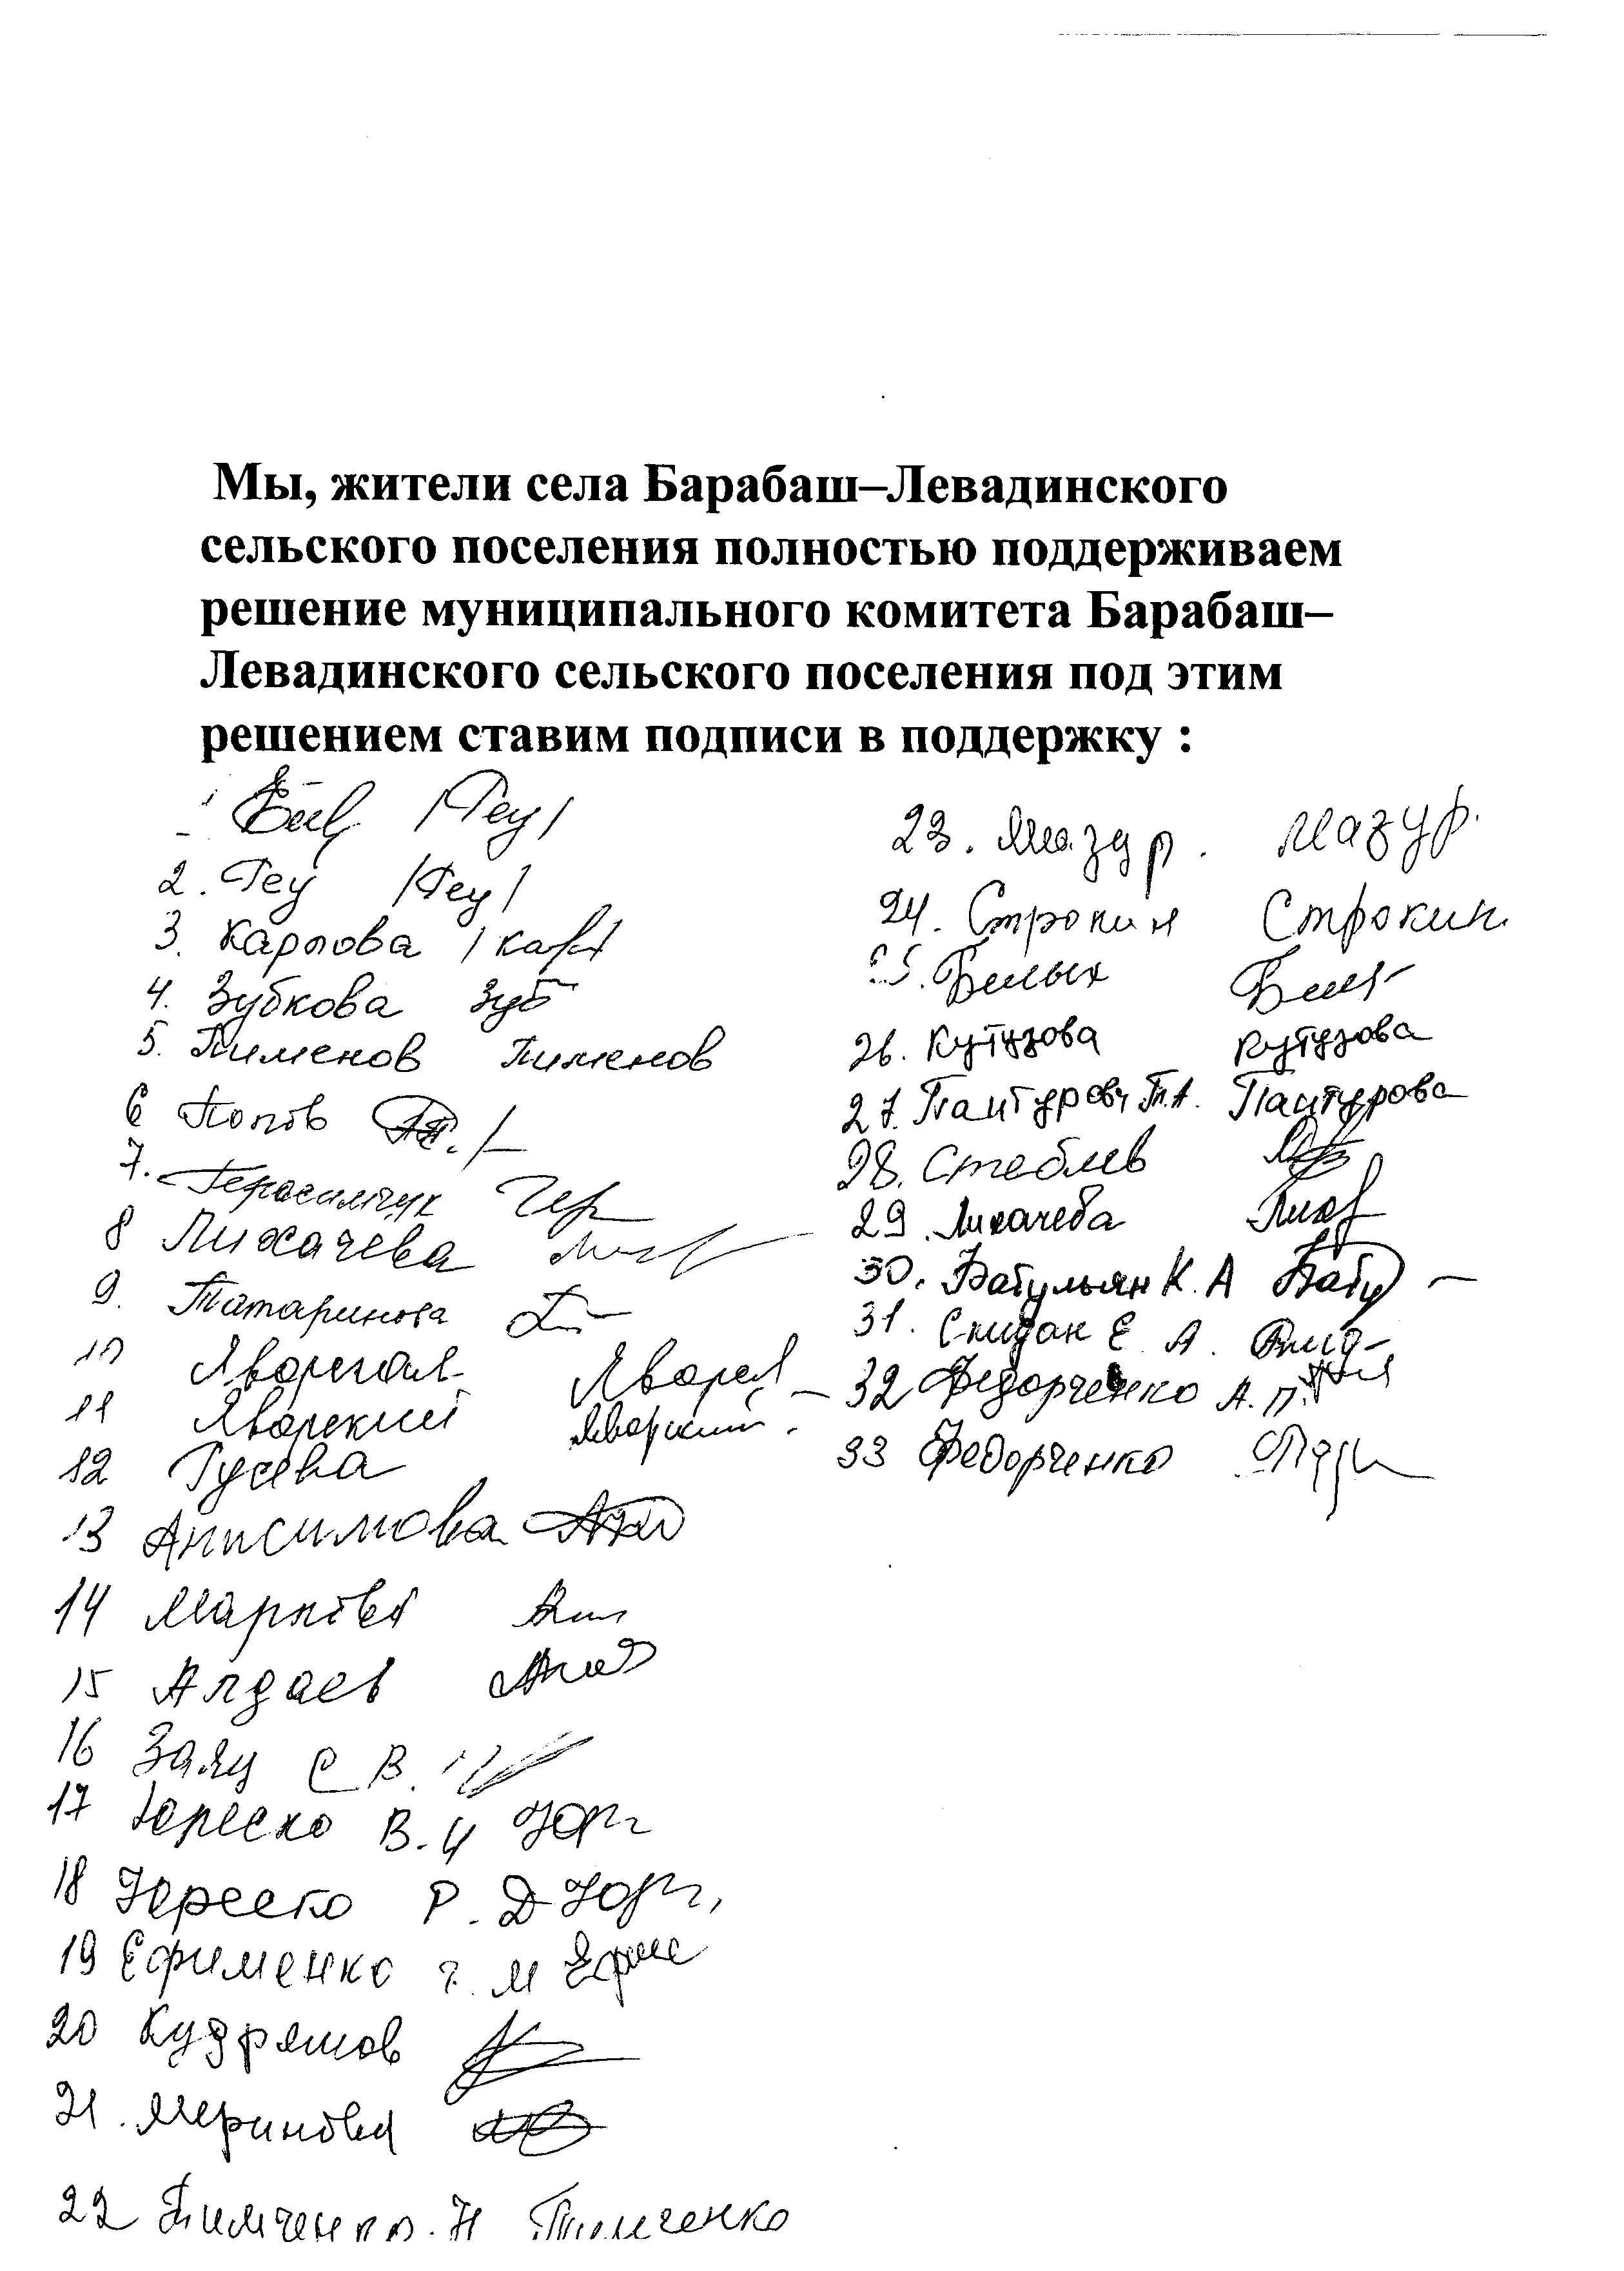 Мы, жители села Барабаш–Левадинского
сельского поселения полностью поддерживаем
решение муниципального комитета Барабаш–
Левадинского сельского поселения под этим
решением ставим подписи в поддержку :
1 /Геу/
2. Геу /Геу/
3. Карпова /Кар/
4. Зубкова Зуб
5. Пименов Пименов
6 Попов
7. Герасимчук Гер
8 Лихачева
9. Татаринова
10 Яворская Яворск
11 Яворский Яворский.
12 Гусева
13 Анисимова
14 Маркова
15 Алдаев
16 Заяц С В.
17 Юреско В. И Юр
18 Юреско Р. Д Юр
19 Ефименко г. М Ефим
20 Кудряшов
21. Меринова
22 Тимченко. Н Тимченко
23. Мазур. Мазур.
24. Строкин Строкин.
25. Белых Бел
26. Кутузова Кутузова
27. Т.А.
28. Стеблев
29. Лихачева Лих
30. Батульян К. А Бату
31. Скидан Е. А. Скид
32 Федорченко А. П.
33 Федорченко